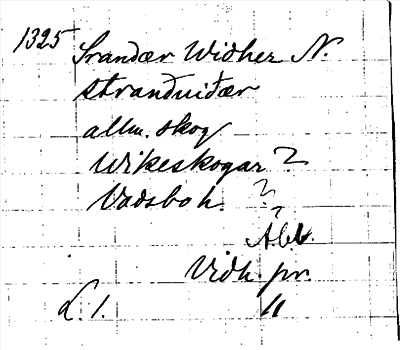 1325 Srandær Widher N.
stranduiðær
allm. skog
Wikeskogar ?
Vadsboh. ?
?
Vidh. pr.
L. 1. 11